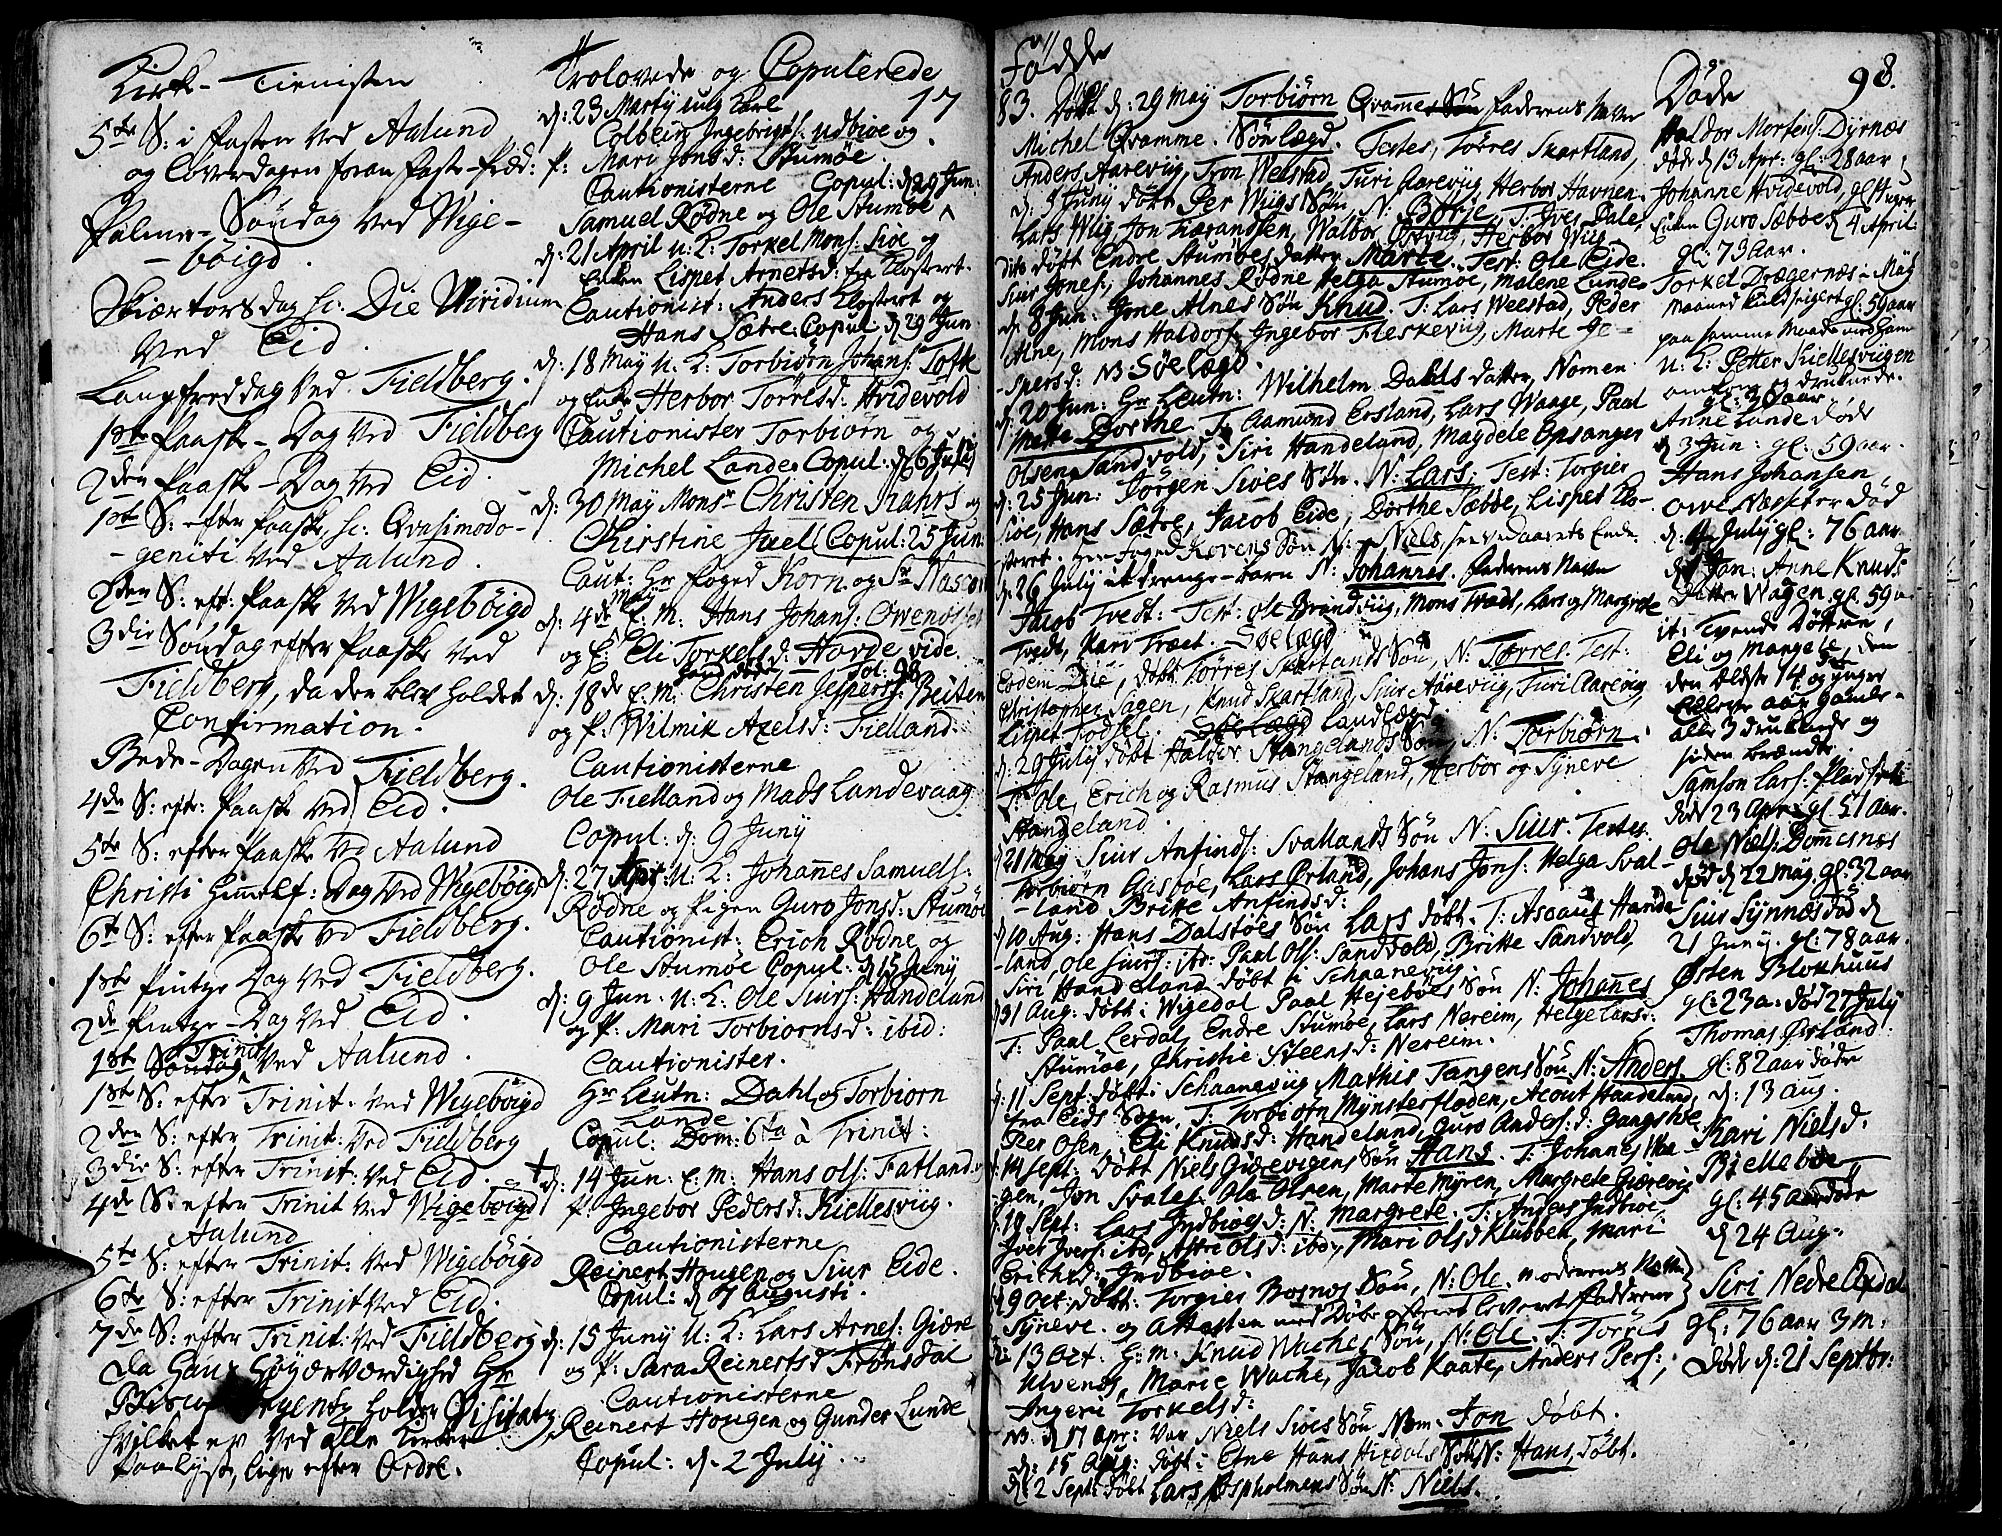 Kirk-Tienisten
5te S: i Fasten Ved Aalund
og Løverdagen foran Faste-Præd:
Palme-Søndag Ved Wige-
-bøigd.
Skiærtorsdag sc: Die Viridium
Ved Eid.
Langfredag Ved Fieldberg.
1ste Paaske-Dag Ved Fieldberg
2den Paaske-Dag Ved Eid.
1ste S: efter Paaske, sc: Qvasimodo-
-geniti Ved Aalund.
2den S: eft: Paaske Ved Wigebøigd
3die Søndag efter Paaske Ved
Fieldberg, da der blev holdet
Confirmation.
Bede-Dagen Ved Fieldberg.
4de S: eft: Paaske Ved Eid.
5te S: efter Paaske Ved Aalund
Christi Himelf: Dag Ved Wigebøigd
6te S: efter Paaske Ved Fieldberg.
1ste Pintze Dag Ved Fieldberg.
2de Pintze-Dag Ved Eid.
Trinit
1ste Søndag Ved Aalund.
1ste S: efter Trinit. Ved Wigebøigd
2den S: efter Trinit: Ved Fieldberg
3die S: efter Trinit: Ved Eid.
4de S: efter Trinit Ved Wigebøigd
Aalund
5te S: efter Trinit: Ved Wigebøigd
6te S: efter Trinit Ved Eid.
7de S: efter Trinit: Ved Fieldberg
da Hans Høyærværdighed Hr
Biscop holder Visitatz,
hvilket er Ved alle Kirker
paalyst, lige efter Ordre.
Trolovede og Copulerede
17
d: 23 Marty ung Karl
Colbein Ingebrigts: Udbioe og
P: Mari Jonsd: Stumoe.
Cautionisterne Copul: d 29 Jun:
Samuel Rødne og Ole Stumoe
d: 21 April U. K: Torkel Mons: Sioe og
Enken Lispet Arnetsd: fra Klosteret.
Cautionist: Anders Klosteret og
Hans Sætre: Copul d 29 Jun
d: 18 May U. K: Torbiørn Johans: Tofte
og Enke Herbor Tørresd: Hvidevold
Cautionister Torbiørn og
Michel Lande. Copul: d 6 July
d: 30 May Monsr Christen Kahrs og
Christine Juell Copul: 25 Jun:
Caut: Hr Foged Korn og Sr
May
d: 4de E. M: Hans Johans:
og E Eli Torkelsd: Hovde vide
Fol: 98
d: 18de E. M: Christen Jespers:
og P: Wilmik Axelsd: Fielland.
Cautionisterne
Ole Fielland og Mads Landevaag
Copul: d: 9 Juny
d: 27 Apr: U. K: Johañes Samuels:
Rødne og Pigen Guro Jonsd: Stumoe
Cautionist: Erich Rødne og
Ole Stumoe Copul: d 15 Juny
d: 9 Jun. U. K: Ole Siurs: Handeland
og P: Mari Torbiornsd: ibid:
Cautionister.
Hr Leutn: Dahl og Torbiorn
Lande
Copul: Dom: 6ta à Trinit:
d: 14 Jun: E. M: Hans Ols: Fatland og
P: Ingebor Pedersd: Kiellesviig.
Cautionisterne
Reinert Hougen og Siur Eide.
Copul: d 7 Augusti.
d: 15 Juny U. K: Lars Arnes: Giære
og P: Sara Reinertsd Frønsdal
Cautionisterne
Reinert Hougen og Gunder Lunde
Copul: d. 2 July
Fødde
83. Døbt d: 29 May Torbiørn Qvamme Søn Faderens Navn
Michel Qvamme. Sønlægd. Testes, Tørres Skartland,
Anders Aarevig, Tron Welstad, Turi Aareviig, Herbor Havnen.
d: 5 Juny døbt Per Wiigs Søn N: Børje, T: Ives Dale,
Lars Wiig, Jon Larandsen, Walbor, Herbor Wiig
dito døbt Endre Stumoes datter Marte. Test: Ole Eide.
Siur Jones:, Johannes Rødne Helga Stumoe, Malene Lunde
d: 8 Jun: Jone Alnes Søn Knud. T: Lars Weestad, Peder
Alne, Mons Haldors: Ingebor Fleskeviig, Marte Je-
-spersd: NB Søelægd
d: 20 Jun: Hr Leutn: Wilhelm Dahls datter, Nomen
Mette Dorthe. T: Aamund Ersland, Lars Waage, Paal
Olsen Sandvold, Siri Handeland, Magdele Opsanger
d: 25 Jun: Jørgen Sioes Søn. N: Lars. Test: Torgier
Sioe, Hans Sætre, Jacob Eide, Dorthe Sæbbe, Lispet Klo-
steret. Herr Foged Korens Søn N: Niels, see ved aarets Ende.
d: 26 July et drenge-barn N: Johannes. Faderens Navn
Jacob Tvedt: Test: Ole Brandviig, Mons Tvedt, Lars og Margrete
Tvedt, Kari Træet. Søelægd
Eodem Die, døbt Tørres Skartlands Søn, N: Tørres. Test:
Christopher Sagen, Knud Skartland, Siur Aareviig, Turi Aareviig,
Lispet Fodsel. Søelægd Landlægd.
d: 29 July døbt Haldor Stangelands Søn, N: Torbiørn.
T: Ole, Erich og Rasmus Stangeland, Herbor og Syneve
Stangeland.
21 May Siur Anfinds: Svallands Søn N. Siur. Testes.
Torbiørn Aasboe, Lars Ørland, Johans Jons: Helga Sval-
-land Britte Anfindsd:
10 Aug: Hans Dalstoes Søn Lars døbt. T: Ascaut Hande
land Ole Siurs: ibd: Paal Ols: Sandvold, Britte Sandvold,
Siri Handeland døbt i Schaaneviig.
31 Aug: døbt: Wigedal Paal Hejeboes Søn N: Johañes
T: Paal Lerdal, Endre Stumoe, Lars Nereim, Helge Larsd:
Stumoe, Christie Steensd: Nereim.
d: 11 Sept: døbt: Schaaneviig Mathis Tangens Søn N: Anders.
fra Eids Sogn, T: Torbiørn Mynsterfloden, Acout Handeland,
Per Osen, Eli Knudsd: Handeland, Guro Andersd: Gangstøe
d: 14 Sept: døbt Niels Giærevigens Søn Hans. T: Johanes Waa-
gen, Jon Svales: Ole Olsen, Marte Myren, Margrete Giæreviig
d: 18 Sept: Lars Indbioes d: N: Margrete. T: Anders Indbioe,
Iver Ivers: ibd, Astri Olsd: ibd, Mari Olsd Klubben, Mari
Erichsd: Indbioe.
29 Oct: døbt: Torgier Bosnes Søn, N: Ole. Moderens Natn
Syneve. og Attesten
13 Oct. H: M: Knud Waches Søn, N: Ole. T: Torris
Ulvenes, Marie Wache, Jacob Kaate, Anders Pers:,
Ingeri Torkelsd:
NB. d 17 Apr: Var Niels Sioes Søn Nom. Jon døbt.
d: 15 Aug: døbt: Etne Hans Hixdals Søn N: Hans, døbt.
d: 2 Sept: døbt Lars Aspholmens Søn N: Niels.
98.
Døde
Haldor Mortens: Dyrnæs
døde d 13 Apr: gl: 28 aar
Johanne Hvidevold, gl: 4 uger
Enken Guro Sæboe d 4 April
gl: 73 Aar.
Torkel Drægernæs i May
Maaned gl: 59 aar
paa samme Maade med ham
U: K: Petter Kiellesviigen
omkom og druknede.
gl: 30 aar
Anne Lande døde
d 3 Jun: gl: 59 aar.
Hans Johansen
død
d 4 July gl: 76 aar
d Jan: Anne Knuds
Datter Wagen gl. 59 a
it: Tvende Døttre,
Eli og Mangele, den
den Eldste 14 og yngre
Elleve aar gamle-
alle 3 druknede og
siden brændte.
Samson Lars:
død 23 Apr: gl: 51 aar.
Ole Niels: Domesnæs
død d 22 May, gl: 32 aar
Siur Synnæs død d
21 Juny. gl: 78 aar.
Østen Blokhuus
gl: 23 a: død 27 July
Thomas Ørland
gl: 82 aar døde
d: 13 aug.
Kari Nielsd.
Bielleboe
gl: 45 aar døde
d 24 Aug.
Siri Nedre Axdal
gl: 76 aar 3 m:
Døde d: 21 Septbr: